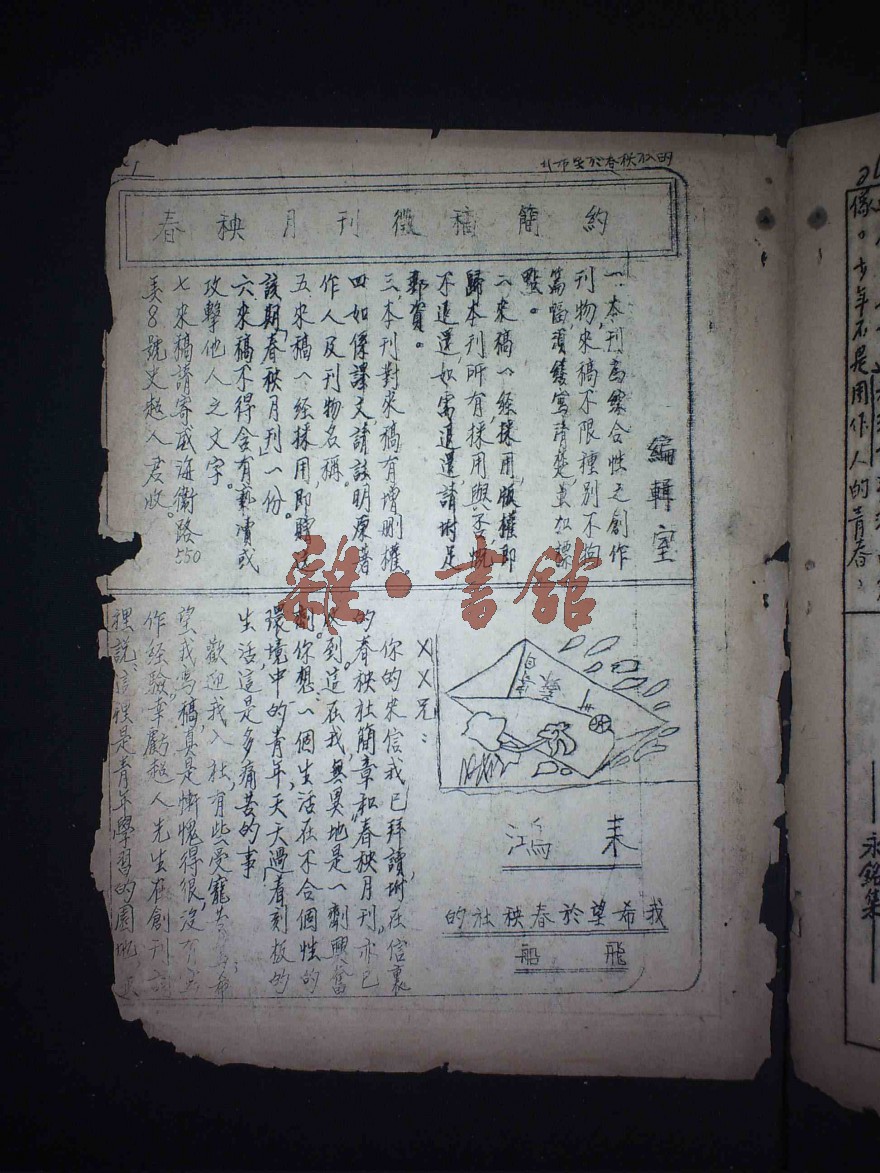 春秧月刊徵稿簡約
編輯室
一、本刊為綜合性之創作
刊物，來稿不限種別不拘
篇幅，須繕寫清楚並加標
點。
二、來稿一經採用，版權即
歸本刊所有，採用與否，概
不退還，如需退還，請附足
郵資。
三、本刊對來稿有增刪權。
四、如係譯文，請註明原著
作人及刊物名稱。
五、來稿一經採用，即贈送
該期「春秧月刊」一份。
六、來稿不得含有褻瀆或
攻擊他人之文字。
七、來稿請寄威海衛路550
美8號史超人君收。
雜·書館
來鴻
我希望於春秧社的
飛船
××兄：
你的來信我已拜讀，附在信裏
的春秧社簡章和「春秧月刊」亦已
收到。這在我，無異地是一劑興奮
劑。你想：一個生活在不合個性的
環境中的青年，天天過着刻板的
生活，這是多痛苦的事。
歡迎我入社，有些受寵
望我寫稿，真是慚愧得很，沒有
作經驗，幸虧超人先生在創刊詞
裡說：這裡是青年學習的園地
像。少年不是用作人的青春，
永銘集